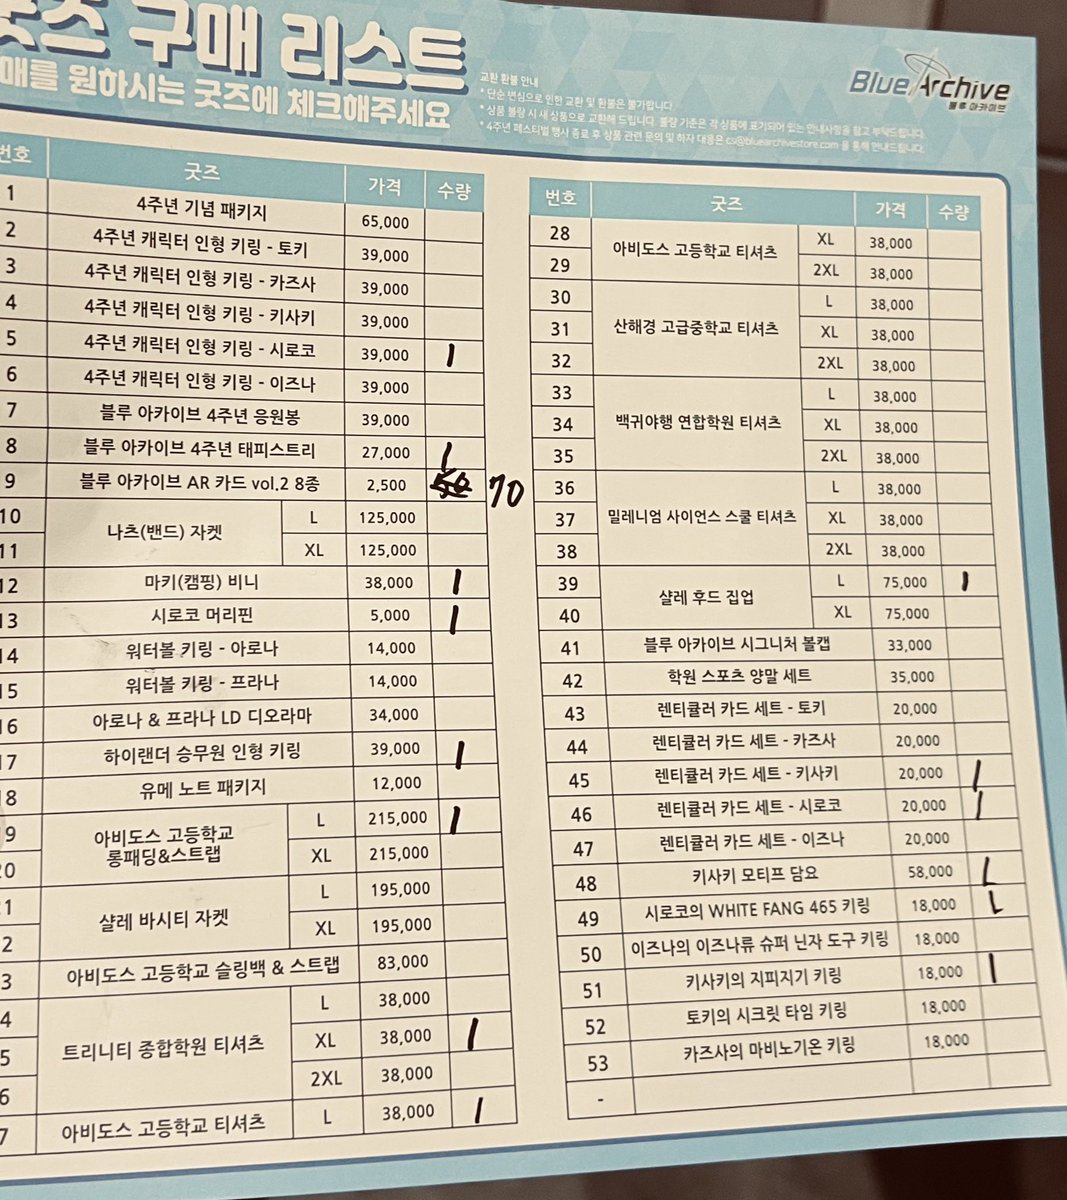 굿즈 구매 리스트
매를 원하시는 굿즈에 체크해주세요
교환 환불 안내
* 단순 변심으로 인한 교환 및 환불은 불가합니다.
* 상품 불량 시 새 상품으로 교환해 드립니다. 불량 기준은 각 상품에 표기되어 있는 안내사항을 참고 부탁드립니다.
* 4주년 페스티벌 행사 종료 후 상품 관련 문의 및 하자 대응은 cs@bluearchivestore.com 을 통해 안내드립니다.
Blue Archive
블루 아카이브
번호 굿즈 가격 수량
1 4주년 기념 패키지 65,000
2 4주년 캐릭터 인형 키링 - 토키 39,000
3 4주년 캐릭터 인형 키링 - 카즈사 39,000
4 4주년 캐릭터 인형 키링 - 키사키 39,000
5 4주년 캐릭터 인형 키링 - 시로코 39,000 1
6 4주년 캐릭터 인형 키링 - 이즈나 39,000
7 블루 아카이브 4주년 응원봉 39,000
8 블루 아카이브 4주년 태피스트리 27,000 1
9 블루 아카이브 AR 카드 vol.2 8종 2,500 70
10 나츠(밴드) 자켓 L 125,000
11 XL 125,000
12 마키(캠핑) 비니 38,000 1
13 시로코 머리핀 5,000 1
14 워터볼 키링 - 아로나 14,000
15 워터볼 키링 - 프라나 14,000
16 아로나 & 프라나 LD 디오라마 34,000
17 하이랜더 승무원 인형 키링 39,000 1
18 유메 노트 패키지 12,000
9 아비도스 고등학교 롱패딩&스트랩 L 215,000 1
0 XL 215,000
1 샬레 바시티 자켓 L 195,000
2 XL 195,000
3 아비도스 고등학교 슬링백 & 스트랩 83,000
4 트리니티 종합학원 티셔츠 L 38,000
5 XL 38,000 1
6 2XL 38,000
7 아비도스 고등학교 티셔츠 L 38,000 1
번호 굿즈 가격 수량
28 아비도스 고등학교 티셔츠 XL 38,000
29 2XL 38,000
30 산해경 고급중학교 티셔츠 L 38,000
31 XL 38,000
32 2XL 38,000
33 백귀야행 연합학원 티셔츠 L 38,000
34 XL 38,000
35 2XL 38,000
36 밀레니엄 사이언스 스쿨 티셔츠 L 38,000
37 XL 38,000
38 2XL 38,000
39 샬레 후드 집업 L 75,000 1
40 XL 75,000
41 블루 아카이브 시그니처 볼캡 33,000
42 학원 스포츠 양말 세트 35,000
43 렌티큘러 카드 세트 - 토키 20,000
44 렌티큘러 카드 세트 - 카즈사 20,000
45 렌티큘러 카드 세트 - 키사키 20,000 1
46 렌티큘러 카드 세트 - 시로코 20,000 1
47 렌티큘러 카드 세트 - 이즈나 20,000
48 키사키 모티프 담요 58,000 1
49 시로코의 WHITE FANG 465 키링 18,000 1
50 이즈나의 이즈나류 슈퍼 닌자 도구 키링 18,000
51 키사키의 지피지기 키링 18,000 1
52 토키의 시크릿 타임 키링 18,000
53 카즈사의 마비노기온 키링 18,000
-